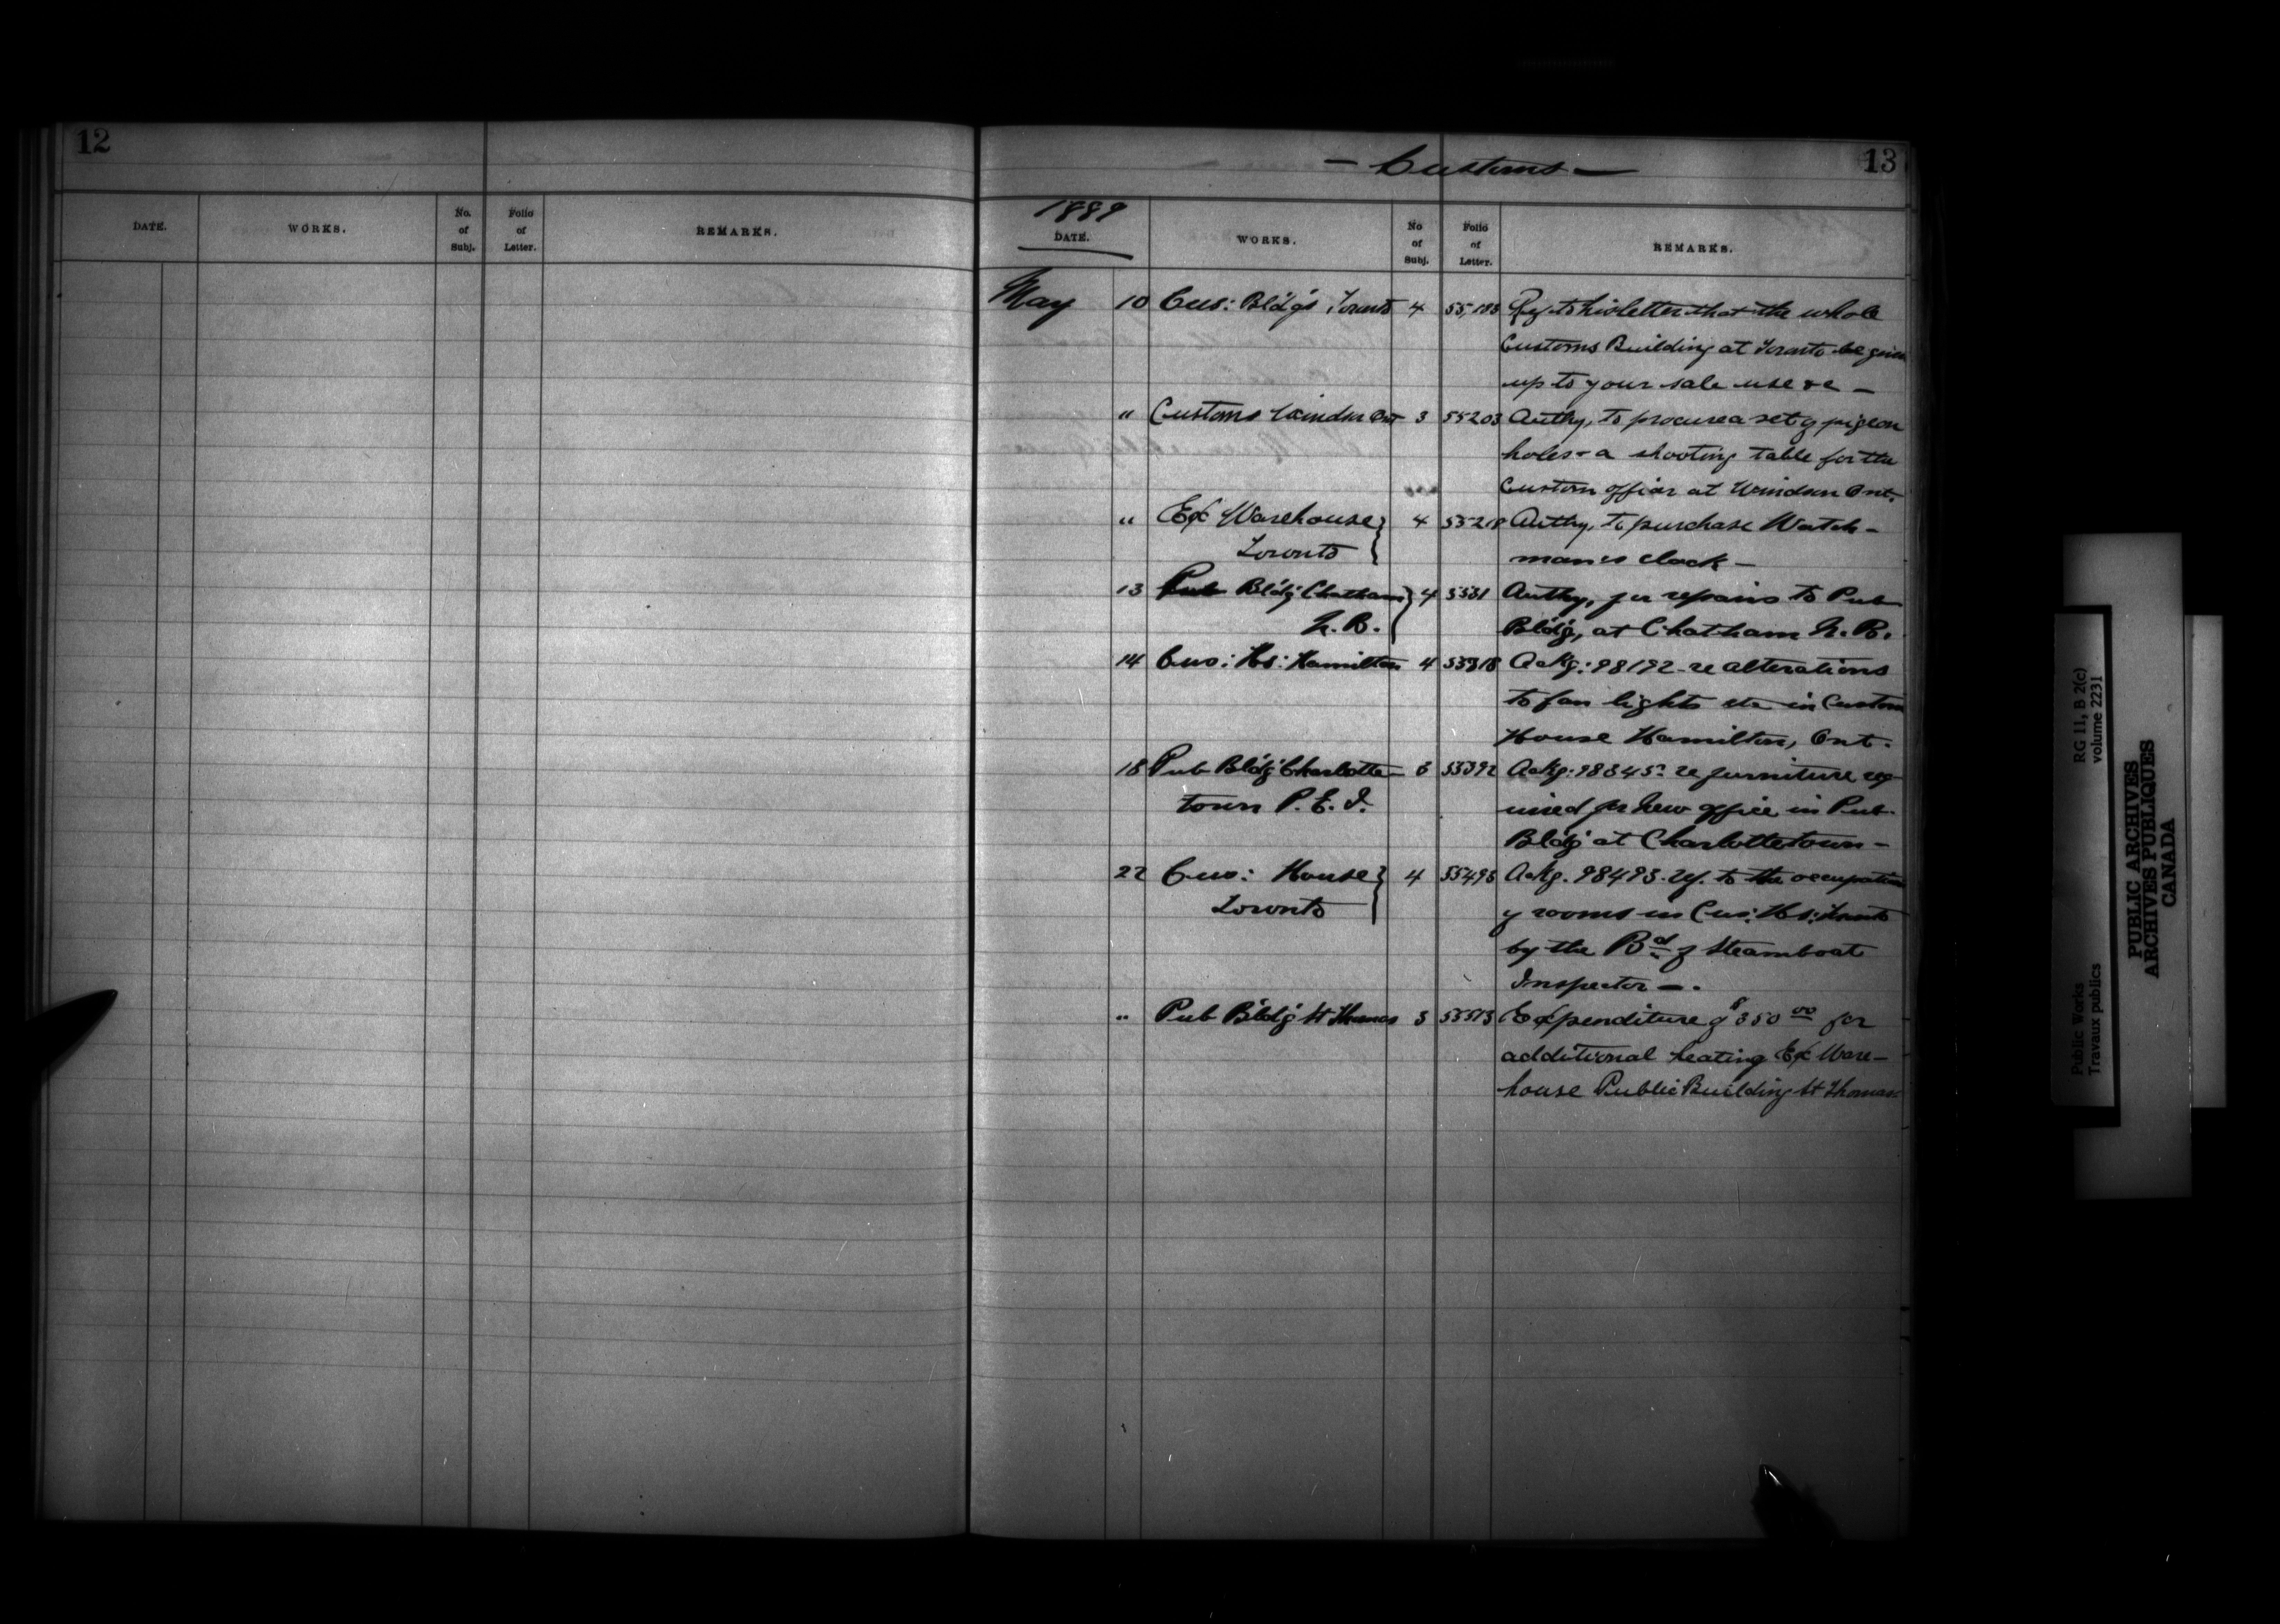 12
DATE. WORKS. No. of Subj. Folio of Letter. REMARKS.
- Customs - 13
1889
DATE. WORKS. No of Subj. Folio of Letter. REMARKS.
May 10 Cus: Bldgs Toronto 4 55,183 Rfg to his letter that the whole
Customs Building at Toronto be given
up to your sale use &c -
" Customs Windsor Ont 3 55203 Authy, to procure a set of pigeon
holes & a shooting table for the
Custom office at Windsor Ont.
" Ex Warehouse } 4 55218 Authy, to purchase Watch-
Toronto man's clock -
13 Pub Bldg Chatham } 4 5531 Authy, for repairs to Pub
N.B. Bldg, at Chatham N.B.
14 Cus: Hs: Hamilton 4 55318 Ackg: 98192 - re alterations
to fan lights etc in Custom
House Hamilton, Ont.
18 Pub Bldg Charlotte- 3 55392 Ackg: 98345 re furniture req-
town P.E.I. uired for new office in Pub.
Bldg at Charlottetown -
22 Cus: House } 4 55493 Ackg. 98493. ref. to the occupation
Toronto of rooms in Cus: Hs: Toronto
by the Bd of Steamboat
Inspector -.
" Pub Bldg St Thomas 3 55513 Expenditure of $350 00 for
additional heating Ex Ware-
house Public Building St Thomas
Public Works RG 11, B 2(c)
Travaux publics volume 2231
PUBLIC ARCHIVES
ARCHIVES PUBLIQUES
CANADA